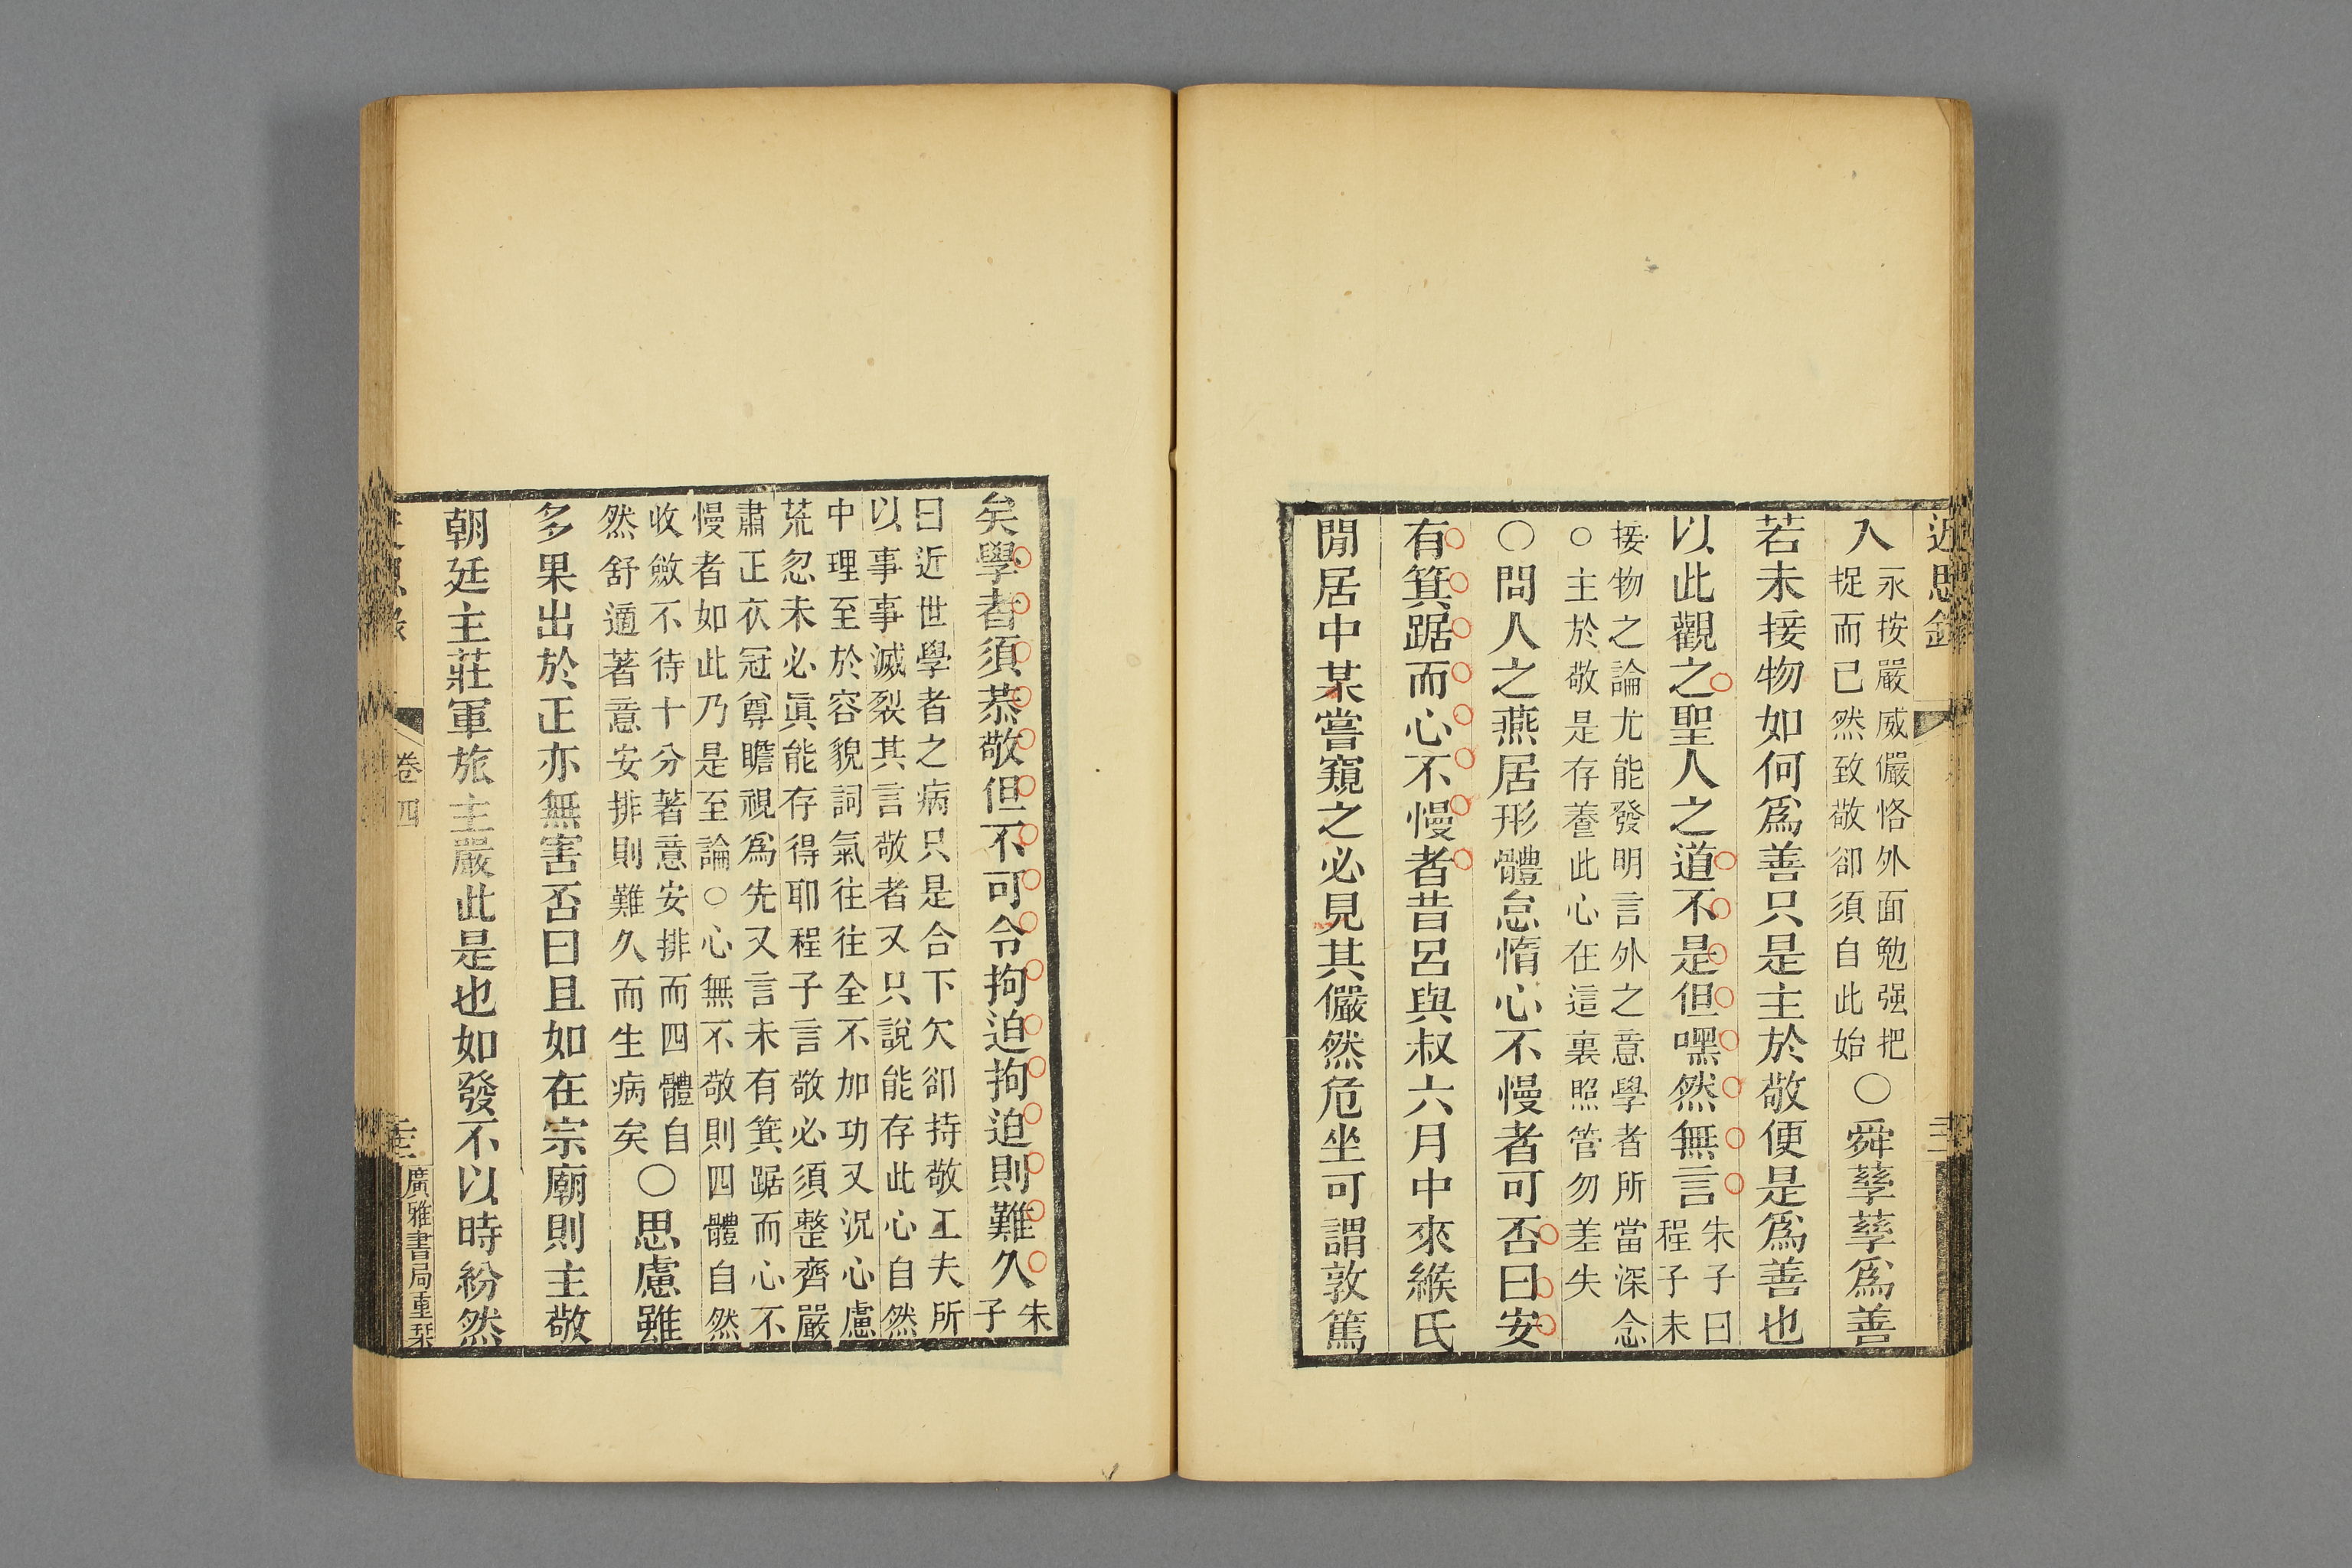 近思錄
入永按嚴威儼恪外面勉强把
捉而已然致敬卻須自此始〇舜孳孳爲善
若未接物如何爲善只是主於敬便是爲善也
以此觀之聖人之道不是但嘿然無言朱子曰
程子未
接物之論尤能發明言外之意學者所當深念
○主於敬是存養此心在這裏照管勿差失
〇問人之燕居形體怠惰心不慢者可否曰安
有箕踞而心不慢者昔呂與叔六月中來緱氏
閒居中某嘗窺之必見其儼然危坐可謂敦篤
矣學者須恭敬但不可令拘迫拘迫則難久朱
子
曰近世學者之病只是合下欠卻持敬工夫所
以事事滅裂其言敬者又只說能存此心自然
中理至於容貌詞氣往往全不加功又況心慮
荒忽未必眞能存得耶程子言敬必須整齊嚴
肅正衣冠尊瞻視爲先又言未有箕踞而心不
慢者如此乃是至論○心無不敬則四體自然
收斂不待十分著意安排而四體自
然舒適著意安排則難久而生病矣〇思慮雖
多果出於正亦無害否曰且如在宗廟則主敬
朝廷主莊軍旅主嚴此是也如發不以時紛然
卷四
廣雅書局重栞